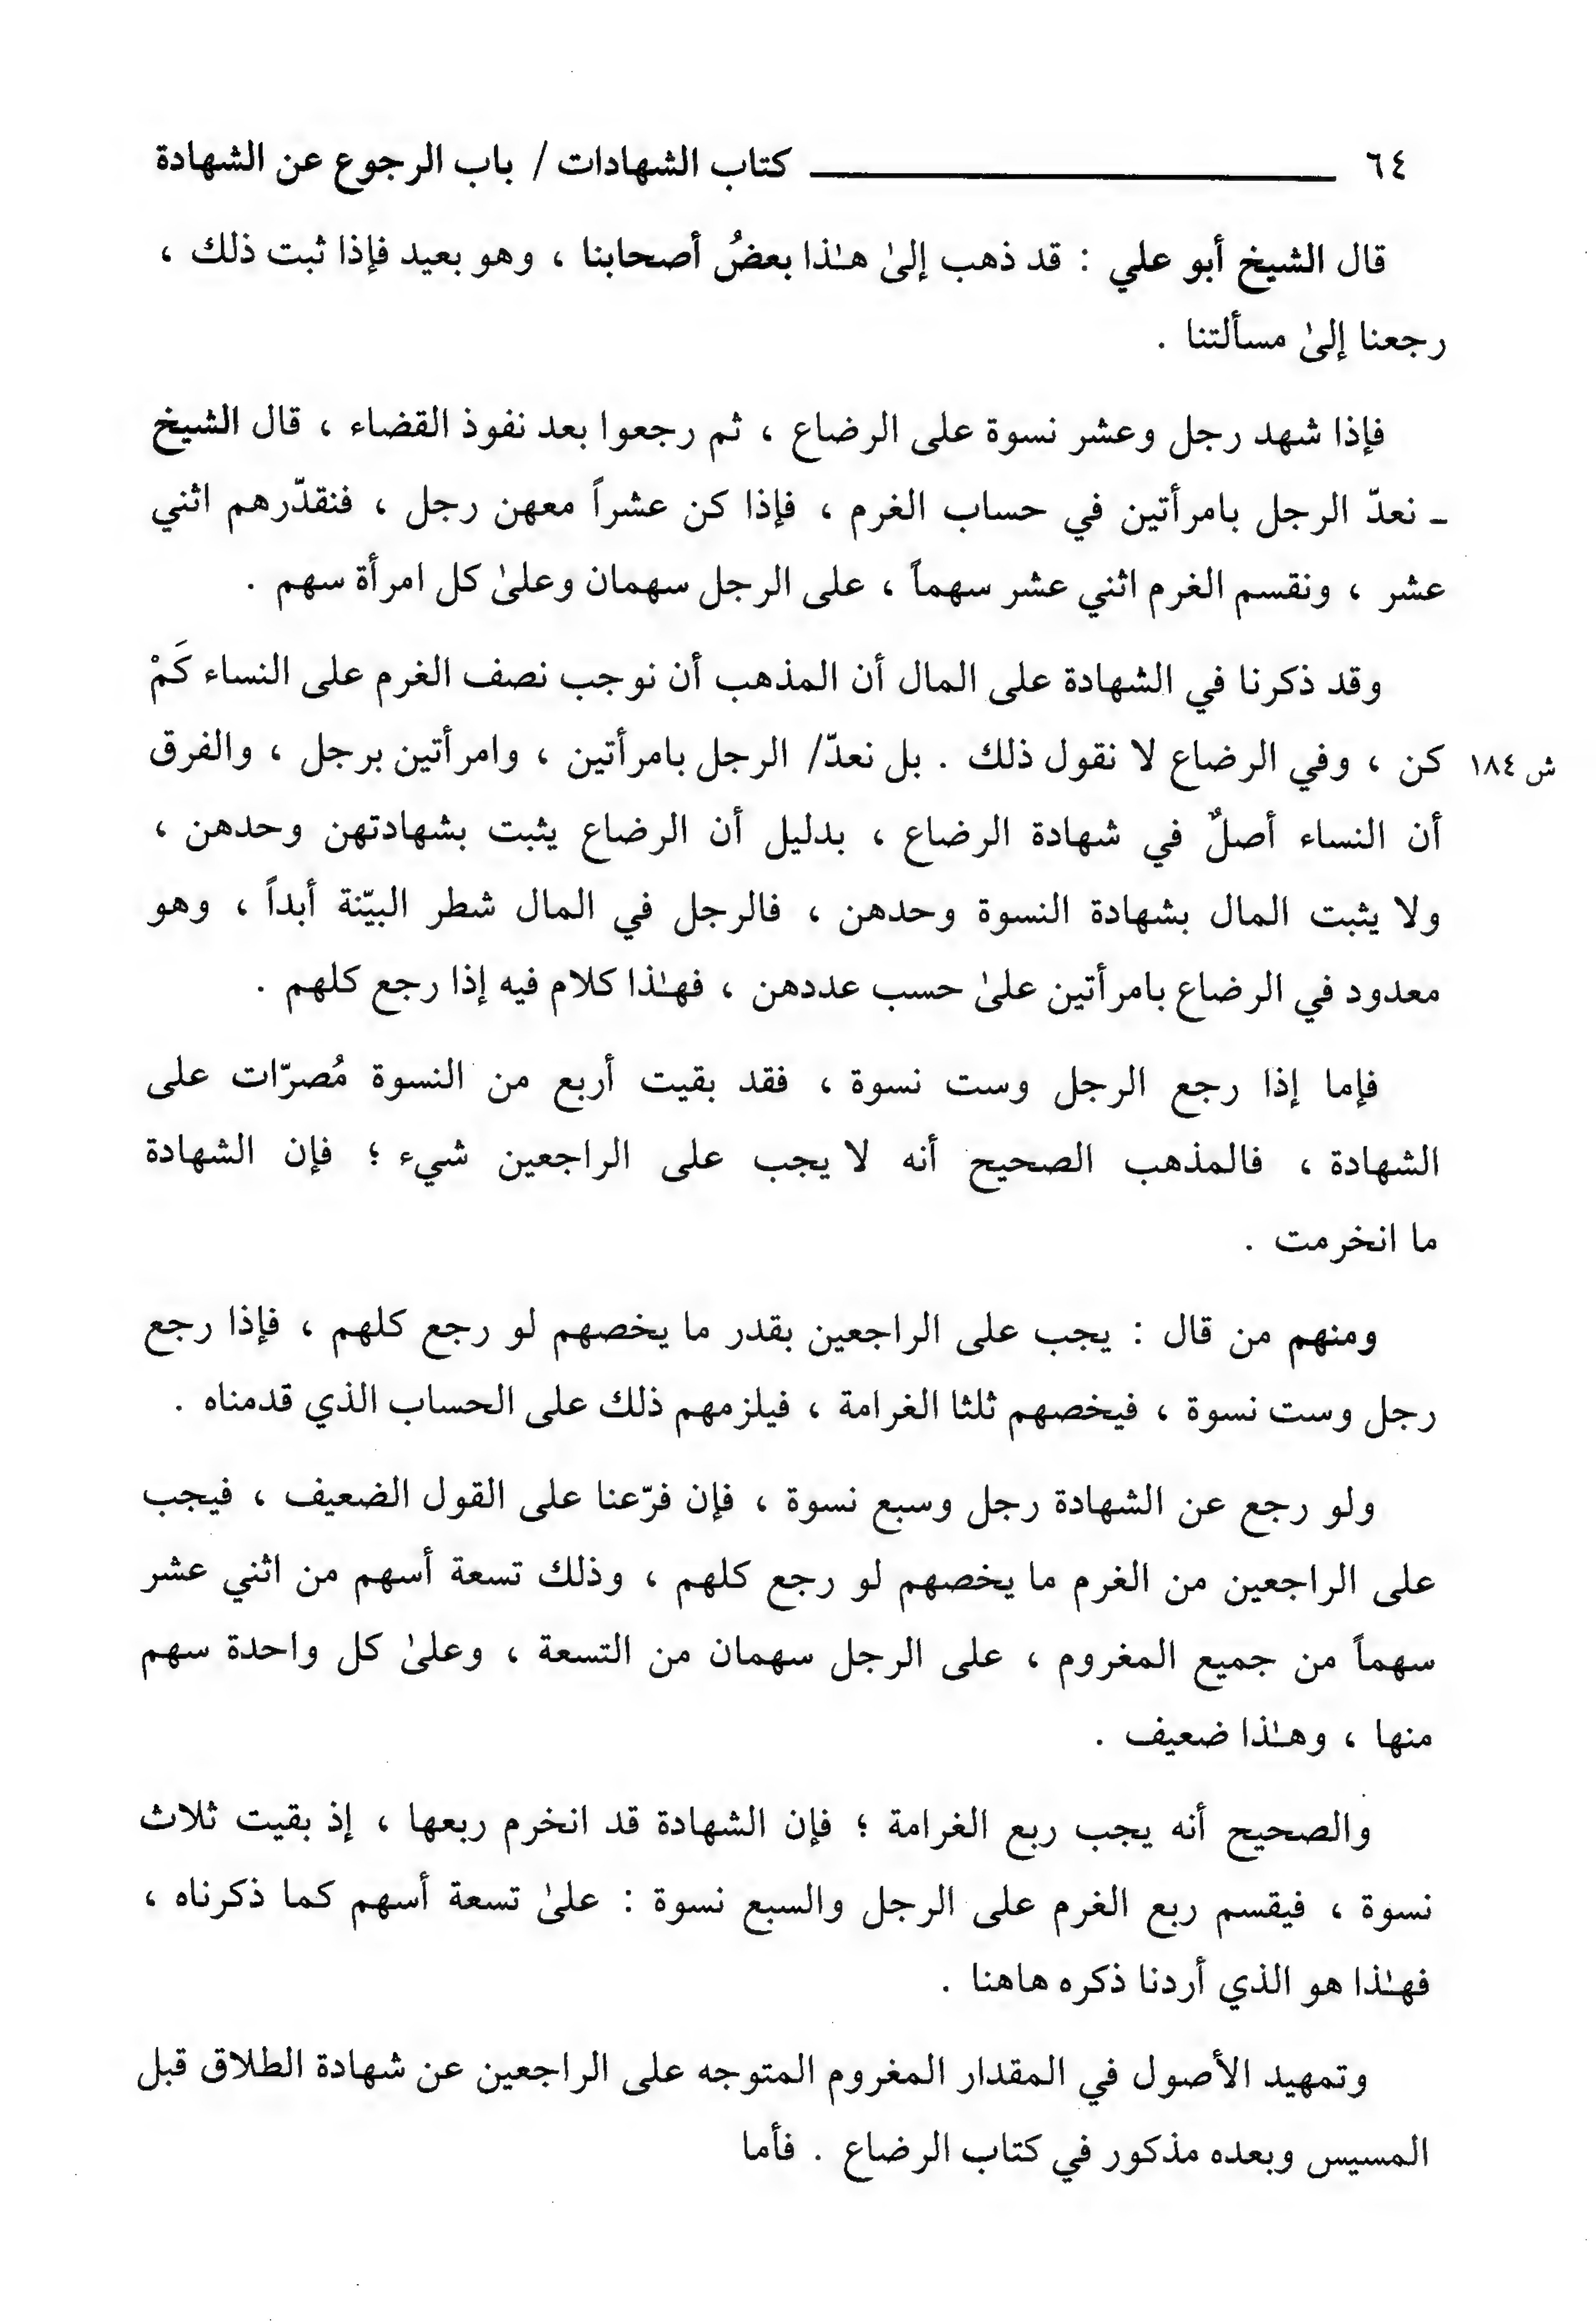 ٦٤ كتاب الشهادات / باب الرجوع عن الشهادة
قال الشيخ أبو علي : قد ذهب إلىٰ هـٰذا بعضُ أصحابنا ، وهو بعيد فإذا ثبت ذلك ،
رجعنا إلىٰ مسألتنا .
فإذا شهد رجل وعشر نسوة على الرضاع ، ثم رجعوا بعد نفوذ القضاء ، قال الشيخ
ـ نعدّ الرجل بامرأتين في حساب الغرم ، فإذا كن عشراً معهن رجل ، فنقدّرهم اثني
عشر ، ونقسم الغرم اثني عشر سهماً ، على الرجل سهمان وعلىٰ كل امرأة سهم .
وقد ذكرنا في الشهادة على المال أن المذهب أن نوجب نصف الغرم على النساء كَمْ
كن ، وفي الرضاع لا نقول ذلك . بل نعدّ/ الرجل بامرأتين ، وامرأتين برجل ، والفرق
ش ١٨٤
أن النساء أصلٌ في شهادة الرضاع ، بدليل أن الرضاع يثبت بشهادتهن وحدهن ،
ولا يثبت المال بشهادة النسوة وحدهن ، فالرجل في المال شطر البيّنة أبداً ، وهو
معدود في الرضاع بامرأتين علىٰ حسب عددهن ، فهـٰذا كلام فيه إذا رجع كلهم .
فإما إذا رجع الرجل وست نسوة ، فقد بقيت أربع من النسوة مُصرّات على
الشهادة ، فالمذهب الصحيح أنه لا يجب على الراجعين شيء ؛ فإن الشهادة
ما انخرمت .
ومنهم من قال : يجب على الراجعين بقدر ما يخصهم لو رجع كلهم ، فإذا رجع
رجل وست نسوة ، فيخصهم ثلثا الغرامة ، فيلزمهم ذلك على الحساب الذي قدمناه .
ولو رجع عن الشهادة رجل وسبع نسوة ، فإن فرّعنا على القول الضعيف ، فيجب
على الراجعين من الغرم ما يخصهم لو رجع كلهم ، وذلك تسعة أسهم من اثني عشر
سهماً من جميع المغروم ، على الرجل سهمان من التسعة ، وعلىٰ كل واحدة سهم
منها ، وهـٰذا ضعيف .
والصحيح أنه يجب ربع الغرامة ؛ فإن الشهادة قد انخرم ربعها ، إذ بقيت ثلاث
نسوة ، فيقسم ربع الغرم على الرجل والسبع نسوة : علىٰ تسعة أسهم كما ذكرناه ،
فهـٰذا هو الذي أردنا ذكره هاهنا .
وتمهيد الأصول في المقدار المغروم المتوجه على الراجعين عن شهادة الطلاق قبل
المسيس وبعده مذكور في كتاب الرضاع . فأما